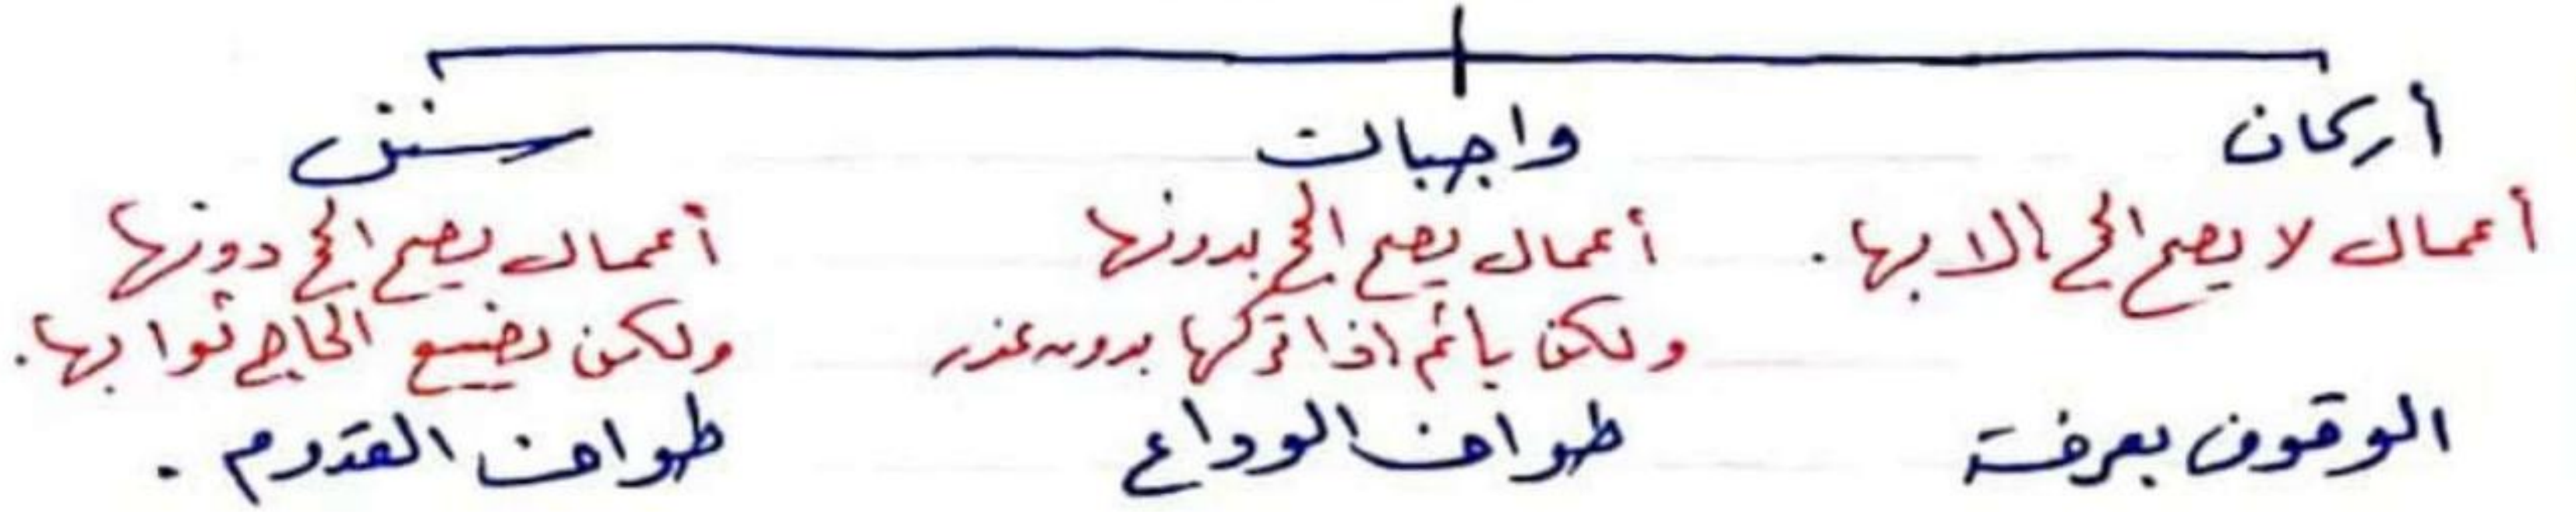 أركان
أعمال لا يصح الحج إلا بها.
الوقوف بعرفة
واجبات
أعمال يصح الحج بدونها
ولكن يأثم إذا تركها بدون عذر
طواف الوداع
سنن
أعمال يصح الحج دونها
ولكن يضيع الحاج ثوابها.
طواف القدوم.